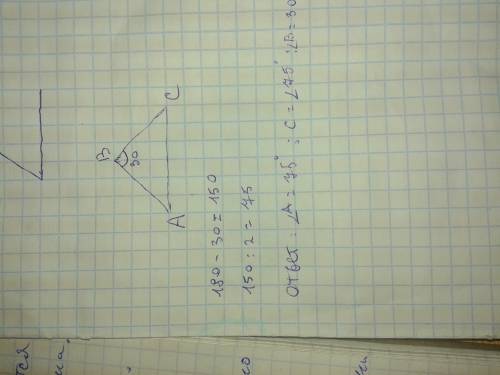 B
30
A
C
180 - 30 = 150
150 : 2 = 75
Ответ: ∠A = 75° ; C = ∠75° ; ∠B = 30